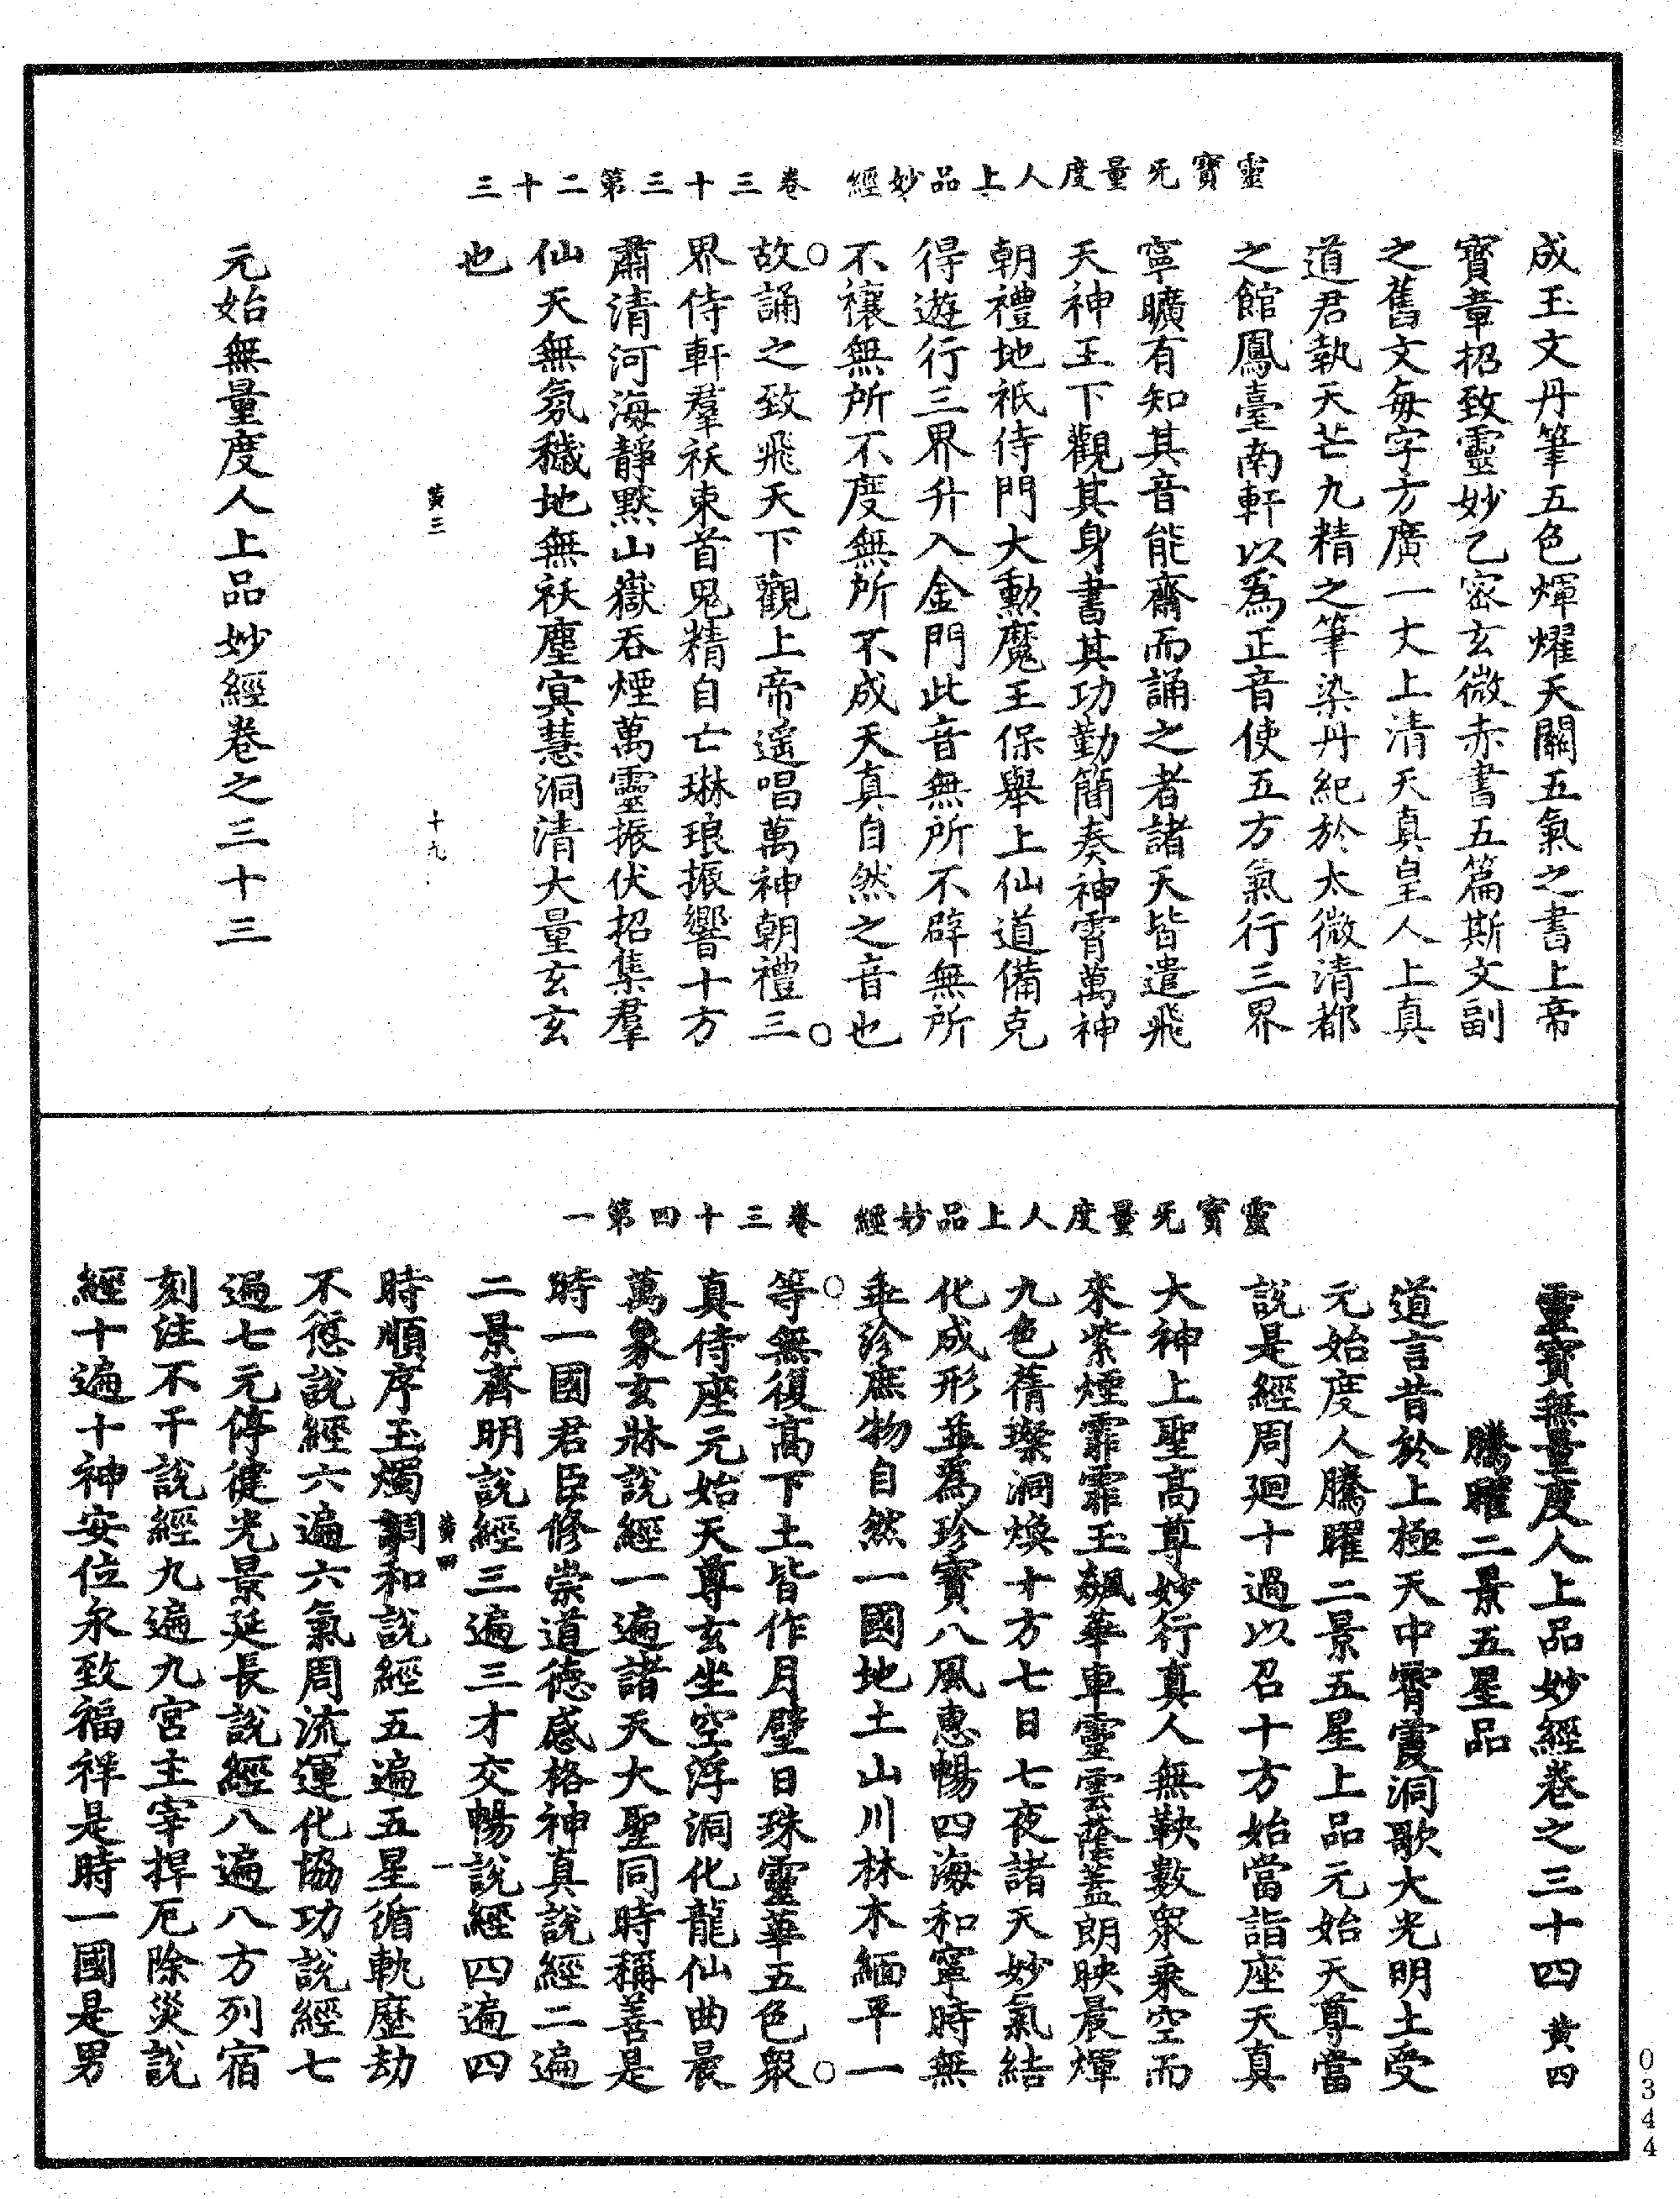 靈寶无量度人上品妙經　卷三十三第二十三
成玉文丹筆五色煇燿天關五氣之書上帝
寶章招致靈妙乙密玄微赤書五篇斯文副
之舊文每字方廣一丈上清天真皇人上真
道君執天芒九精之筆染丹紀於太微清都
之館鳳臺南軒以爲正音使五方氣行三界
寧曠有知其音能齋而誦之者諸天皆遣飛
天神王下觀其身書其功勤簡奏神霄萬神
朝禮地祇侍門大勳魔王保舉上仙道備克
得遊行三界升入金門此音無所不辟無所
不禳無所不度無所不成天真自然之音也
故誦之致飛天下觀上帝遥唱萬神朝禮三
界侍軒羣祅束首鬼精自亡琳琅振響十方
肅清河海靜默山嶽吞煙萬靈振伏招集羣
仙天無氛穢地無祅塵冥慧洞清大量玄玄
也
黃三　十九
元始無量度人上品妙經卷之三十三
靈寶无量度人上品妙經　卷三十四第一
靈寶無量度人上品妙經卷之三十四　黃四
騰曜二景五星品
道言昔於上極天中霄霞洞歌大光明土受
元始度人騰曜二景五星上品元始天尊當
說是經周廻十過以召十方始當詣座天真
大神上聖高尊妙行真人無鞅數衆乘空而
來紫煙霏霏玉飆華車靈雲蔭蓋朗映晨煇
九色蒨璨洞煥十方七日七夜諸天妙氣結
化成形並爲珍寶八風惠暢四海和寧時無
乖沴庶物自然一國地土山川林木緬平一
等無復高下土皆作月璧日珠靈華五色衆
真侍座元始天尊玄坐空浮洞化龍仙曲晨
萬象玄牀說經一遍諸天大聖同時稱善是
時一國君臣修崇道德感格神真說經二遍
二景齊明說經三遍三才交暢說經四遍四
黃四　一
時順序玉燭調和說經五遍五星循軌歷劫
不愆說經六遍六氣周流運化協功說經七
遍七元停徤光景延長說經八遍八方列宿
刻注不干說經九遍九宮主宰捍厄除災說
經十遍十神安位永致福祥是時一國是男
0344